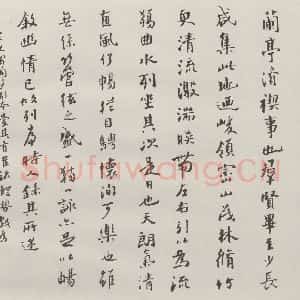 蘭亭脩禊事也羣賢畢至少長
咸集此地迺峻領崇山茂林脩竹
更清流激湍暎帶左右引以爲流
觴曲水列坐其次是日也天朗氣清
惠風和暢娛目騁懷洵可樂也雖
無絲竹管弦之盛一觴一詠亦足以暢
敘幽情已故列序時人錄其所述
Shufawang.CN